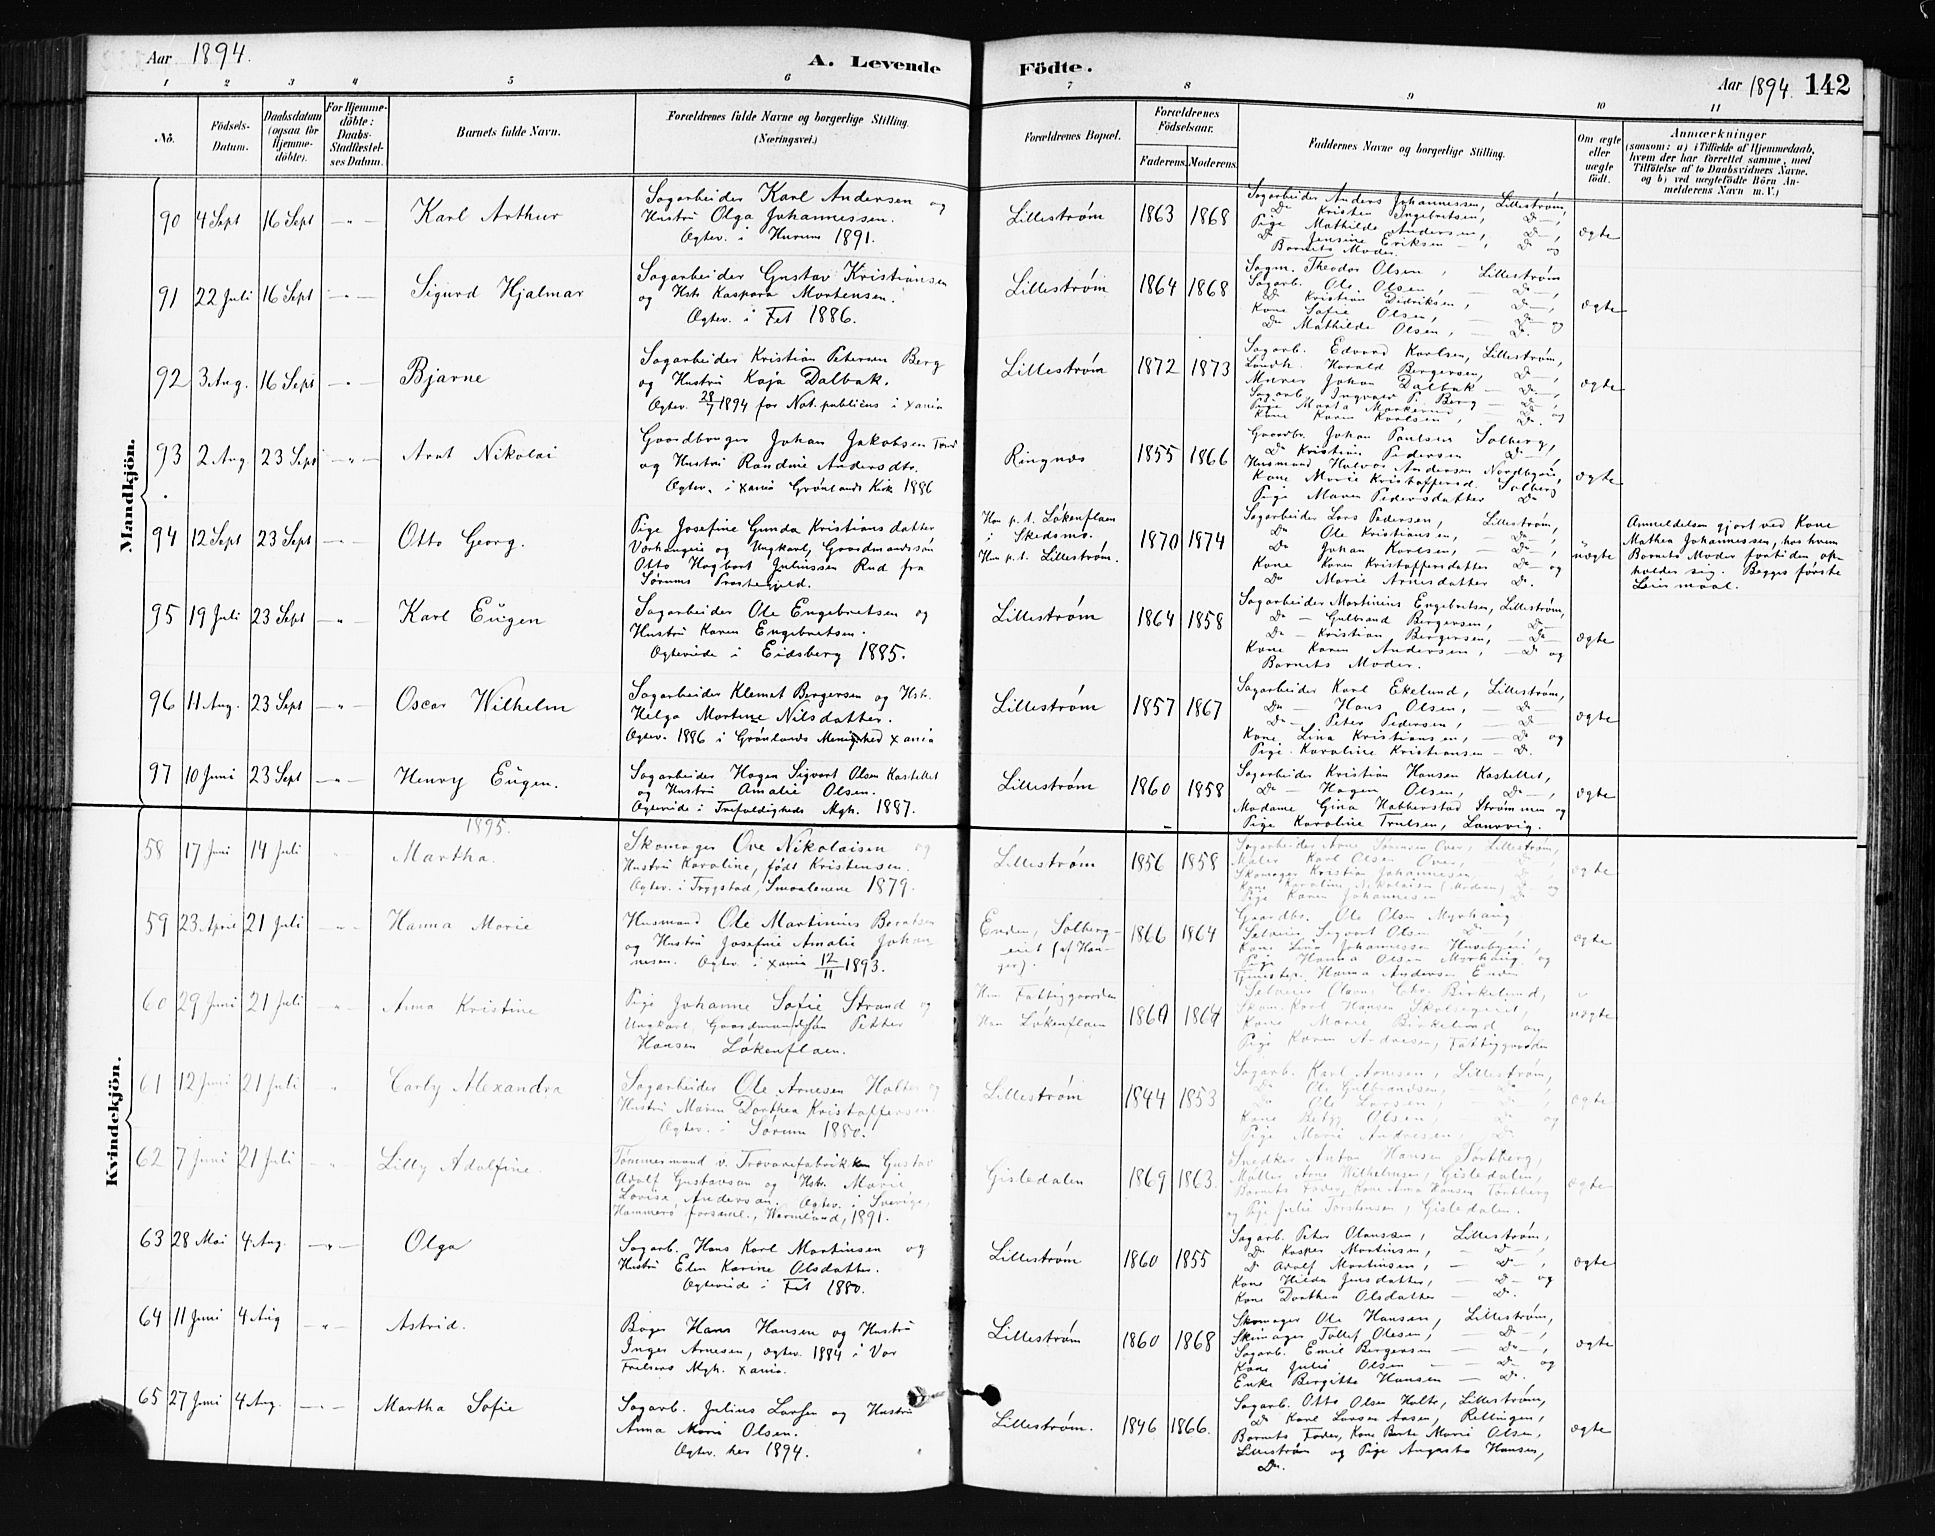 Aar 1894.
A. Levende Födte.
Aar 1894. 142
1 2 3 4 5 6 7 8 9 10 11
No.
Födsels-Datum.
Daabsdatum (ogsaa for Hjemme-döbte).
For Hjemme-döbte: Daabs-Stadfæstel-ses Datum.
Barnets fulde Navn.
Forældrenes fulde Navne og borgerlige Stilling. (Næringsvei.)
Forældrenes Bopæl.
Forældrenes Födselsaar.
Faderens. Moderens.
Faddernes Navne og borgerlige Stilling.
Om ægte eller uægte födt.
Anmærkninger
(saasom: a) i Tilfælde af Hjemmedaab,
hvem der har forrettet samme, med
Tilföielse af to Daabsvidners Navne,
og b) ved uægtefödte Börn An-
melderens Navn m. V.)
Mandkjön.
90 4 Sept 16 Sept -"- Karl Arthur
Sagarbeider Karl Andersen og
Hustru Olga Johannessen.
Ægtev. i Hurum 1891.
Lillestrøm 1863 1868
Sagarbeider Anders Johannessen, Lillestrøm,
Do Kristen Ingebretsen, Do,
Pige Mathilde Andersen, Do,
Do Jensine Eriksen -, Do og
Barnets Moder.
ægte
91 22 Juli 16 Sept -"- Sigurd Hjalmar
Sagarbeider Gustav Kristiansen
og Hstr Kaspara Mortensen.
Ægtev. i Fet 1886.
Lillestrøm 1864 1868
Sagm. Theodor Olsen, Lillestrøm
Sagarb. Ole Olsen, Do,
Do Kristian Didriksen, Do,
Kone Sofie Olsen, Do og
Do Mathilde Olsen, Do
ægte
92 3 Aug. 16 Sept -"- Bjarne
Sagarbeider Kristian Petersen Berg
og Hustru Kaja Dalbak.
Ægtev. 28/7 1894 for Not. publicus i Xania
Lillestrøm 1872 1873
Sagarb. Edvard Karlsen, Lillestrøm,
Landh. Harald Bergersen, Do,
Murer Johan Dalbak - Do,
Sagarb. Ingvald P. Berg - Do,
Pige Marta - Do og
Kone Karen Karlsen, Do.
ægte
93 2 Aug 23 Sept -"- Arnt Nikolai
Gaardbruger Johan Jakobsen
og Hustru Randine Andersdtr.
Ægtev. i Xania Grønlands Kirke 1886
Ringnæs 1855 1866
Gaardbr. Johan Paulsen Solberg,
Do Kristian Pedersen Do,
Husmand Halvor Andersen Nordbyeie,
Kone Marie Kristoffersd. Solberg
Pige Maren Pedersdatter Do
ægte
94 12 Sept 23 Sept -"- Otto Georg.
Pige Josefine Gunda Kristiansdatter
Vorhaugeie og Ungkarl, Gaardmandssøn
Otto Hagbart Juliussen Rud fra
Sørums Prestegjeld.
Hun p.t. Løkenflaen
i Skedsmo.
Han p.t. Lillestrøm.
1870 1874
Sagarbeider Lars Pedersen, Lillestrøm,
Do Ole Kristiansen, Do,
Do Johan Karlsen, Do,
Kone Karen Kristoffersdatter Do og
Do Marie Arnesdatter Do.
uægte
Anmeldelsen gjort ved Kone
Mathea Johannessen, hos hvem
Barnets Moder fortiden op-
holder sig. Begges første
Leiermaal.
95 19 Juli 23 Sept -"- Karl Eugen
Sagarbeider Ole Engebretsen og
Hustru Karen Engebretsen.
Ægteviede i Eidsberg 1885.
Lillestrøm 1864 1858
Sagarbeider Martinius Engebretsen, Lillestrøm,
Do - Gulbrand Bergersen, Do
Do - Kristian Bergersen, Do
Kone Karen Andersen, Do og
Barnets Moder.
ægte
96 11 Aug. 23 Sept -"- Oscar Wilhelm
Sagarbeider Klemet Bergersen og Hstr.
Helga Martine Nilsdatter.
Ægtev. 1886 i Grønlands Menighed Xania
Lillestrøm 1857 1867
Sagarbeider Karl Ekelund, Lillestrøm,
Do - Hans Olsen, Do
Do - Peter Pedersen, Do
Kone Lina Kristiansen, Do og
Pige Karoline Kristiansen - Do.
ægte
97 10 Juni 23 Sept -"- Henry Eugen.
Sagarbeider Hagen Sigvart Olsen Kastellet
og Hustru Amalie Olsen.
Ægteviede i Trefoldigheds Mgh. 1887.
Lillestrøm 1860 1858
Sagarbeider Kristian Hansen Kastellet,
Do - Hagen Olsen, Do,
Madame Gina Habberstad Strømmen og
Pige Karoline Trulsen, Laurvig.
ægte
Kvindekjön.
1895.
58 17 Juni 14 Juli " Martha.
Skomager Ove Nikolaisen og
Hustru Karoline, født Kristensen.
Ægtev. i Trygstad, Smaalenene 1879.
Lillestrøm 1856 1858
Sagarbeider Arne Sørensen Over, Lillestrøm,
Maler Karl Olsen Over, Do
Skomager Kristian Johannesen Do
Kone Karoline Nikolaisen (Moderen) Do og
Pige Karen Johannesen Do
ægte
59 23 April 21 Juli -"- Hanna Marie
Husmand Ole Martinius Berntsen
og Hustru Josefine Amalie Johan
nesen. Ægtev. i Xania 12/11 1893.
Enden, Solberg-
eiet (af Hau-
ger).
1866 1864
Gaardbr. Ole Olsen Myrhaug
Selveier Sigvart Olsen Do
Kone Lina Johannessen Husebyeie,
Pige Hanna Olsen Myrhaug og
Tjenestep. Hanna Andersen Enden
ægte
60 29 Juni 21 Juli " Anna Kristine
Pige Johanne Sofie Strand og
Ungkarl, Gaardmandssøn Petter
Hansen Løkenflaen.
Hun Fattiggaarden
Han Løkenflaen
1869 1864
Selveier Olavus Chr. Birkelund,
Skom. Karl Hansen Skolsegeiet,
Kone Marie Birkelund og
Pige Karen Andresen, Fattiggaarden
uægte
61 12 Juni 21 Juli " Carly Alexandra
Sagarbeider Ole Arnesen Holter og
Hustru Maren Dorthea Kristoffersen.
Ægtev. i Sørum 1880.
Lillestrøm 1844 1853
Sagarb. Karl Arnesen, Lillestrøm,
Do Ole Gulbrandsen, Do,
Do Ole Larsen, Do,
Kone Betzy Olsen, Do og
Pige Marie Andresen, Do
ægte
62 7 Juni 21 Juli -"- Lilly Adolfine
Tømmermand v. Trævarefabrikken Gustav
Adolf Gustavson og Hstr. Marie
Lovise Anderson. Ægtev. i Sverige,
Hammerö forsaml., Wermland, 1891.
Gisledalen 1869 1863.
Snedker Anton Hansen Tortberg,
Møller Arne Wilhelmsen, Gisledalen,
Barnets Fader, Kone Anna Hansen Tortberg
og Pige Julie Torstensen, Gisledalen.
ægte
63 28 Mai 4 Aug. -"- Olga
Sagarb. Hans Karl Martinsen og
Hustru Elen Karine Olsdatter.
Ægteviede i Fet 1880.
Lillestrøm 1860 1855
Sagarb. Peter Olaussen, Lillestrøm,
Do Kasper Martinsen, Do,
Do Adolf Martinsen, Do,
Kone Hilda Jensdatter, Do og
Kone Dorthea Olsdatter - Do.
ægte
64 11 Juni 4 Aug -"- Astrid.
Bager Hans Hansen og Hustru
Inger Arnesen, ægtev. 1884 i Vor
Frelsers Mgh. Xania.
Lillestrøm 1860 1868
Skomager Ole Hansen, Lillestrøm,
Skomager Tollef Olesen, Do,
Sagarb. Emil Bergersen - Do,
Kone Julie Olsen - Do og
Enke Bergitte Hansen - Do.
ægte
65 27 Juni 4 Aug. -"- Martha Sofie
Sagarb. Julius Larsen og Hustru
Anna Marie Olsen.
Ægtev. her 1894.
Lillestrøm. 1846 1866.
Sagarb. Otto Olsen Holts, Lillestrøm,
Do Karl Larsen Aasen, Rellingen,
Barnets Fader, Kone Berte Marie Olsen,
Lillestrøm og Pige Augusta Hansen,
Do.
ægte